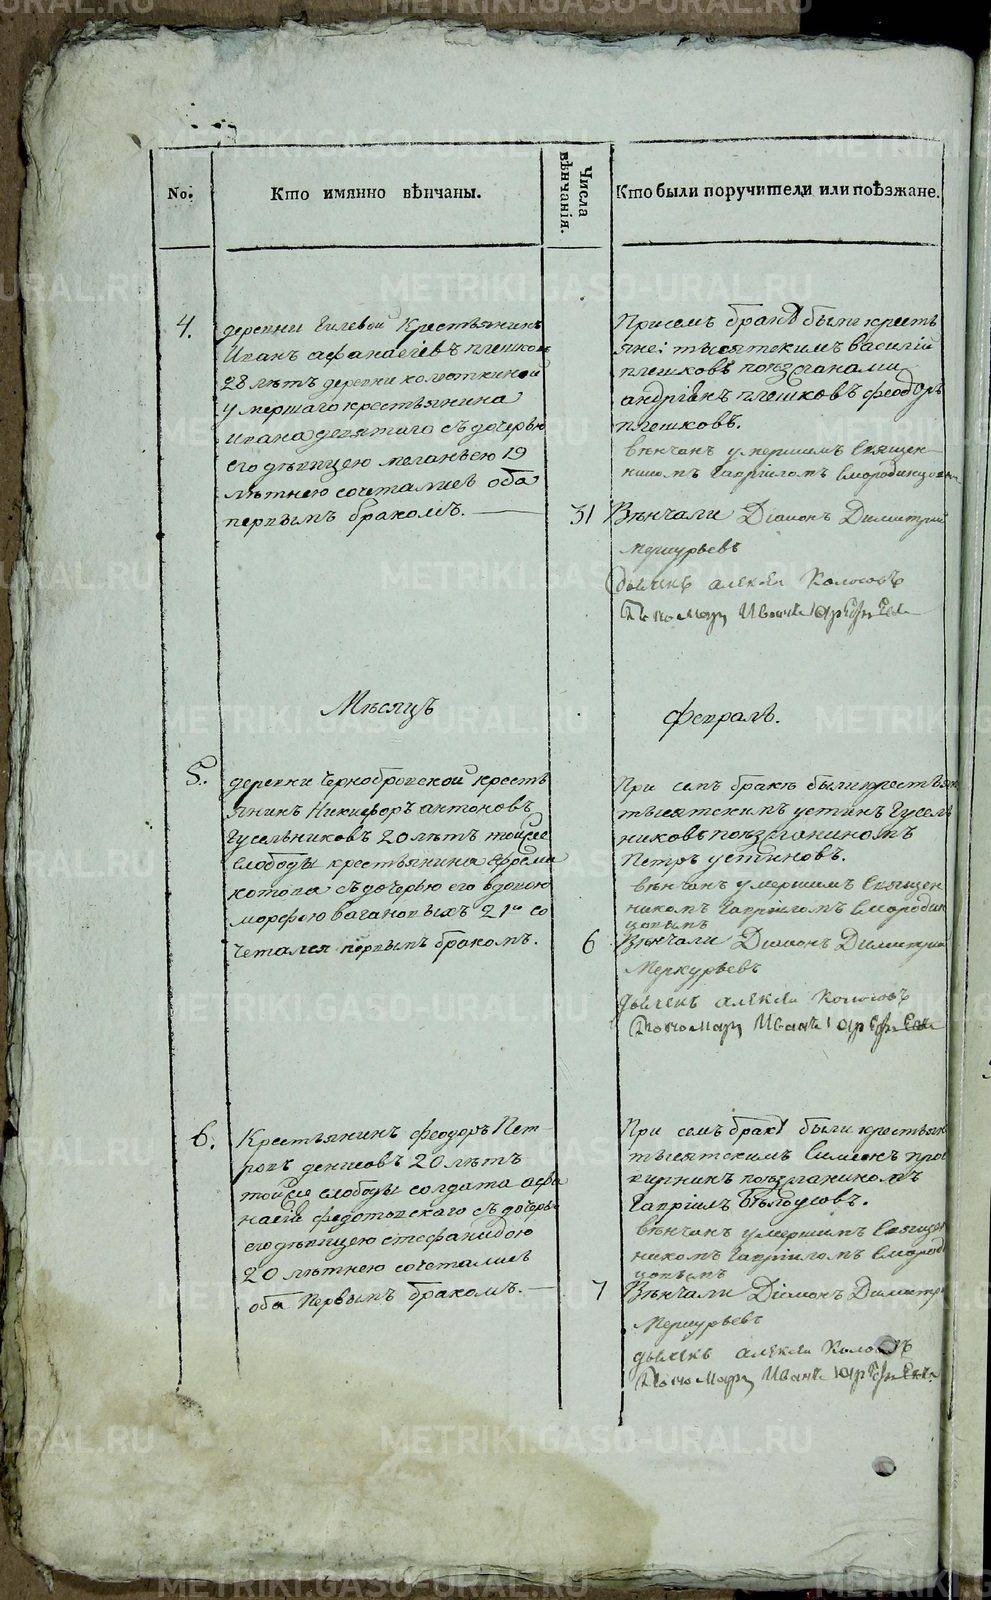 No.
Кто имянно вѣнчаны.
Числа вѣнчанія.
Кто были поручители или поѣзжане.
4.
деревни Гилевой Крестьянинъ
Иванъ афанасіевъ плешков
28 лѣтъ деревни
умершаго крестьянина
ивана девятаго съ дочерью
его дѣвицею меланьею 19
лѣтнею сочеталися оба
первымъ бракомъ.
31
При семъ бракѣ были кресть
яне: тысятскимъ василій
плешковъ поѣзжанами
андріянъ плешковъ феодоръ
плешковъ.
вѣнчанъ умершимъ Священ
никомъ Гавріиломъ Смородинцовым
Вѣнчали Діаконъ Димитрий
Меркурьевъ
дьячекъ алексѣй Колосовъ
Пономарь Иванъ
Мѣсяцъ
февраль.
5.
деревни Чернобровской кресть
янинъ Никифоръ антоновъ
Гусельниковъ 20 лѣтъ тойже
слободы крестьянина ефрема
котова съ дочерью его вдовою
марфою вагановыхъ 21го со
четался первымъ бракомъ.
6
При семъ бракѣ были крестьян
тысятскимъ устинъ Гусель
никовъ поѣзжаниномъ
Петръ устиновъ.
вѣнчанъ умершимъ Священ
никомъ Гавріиломъ Смородин
цовымъ
Вѣнчали Діаконъ Димитрий
Меркурьевъ
дьячекъ алексѣй Колосовъ
Пономарь Иванъ
6.
Крестьянинъ феодоръ Пет-
ровъ денисовъ 20 лѣтъ
тойже слободы солдата афа
насія федотовскаго съ дочерью
его дѣвицею стефанидою
20 лѣтнею сочеталися
оба Первымъ бракомъ.
7
При семъ бракѣ были крестьян
тысятскимъ Симеонъ про
поѣзжаниномъ
Гавріилъ бѣлоусовъ.
вѣнчанъ умершимъ Священ
никомъ Гавріиломъ Смородин
цовымъ
Вѣнчали Діаконъ Димитри
Меркурьевъ
дьячекъ алексѣй Колосовъ
Пономарь Иванъ
METRIKI.GASO-URAL.RU